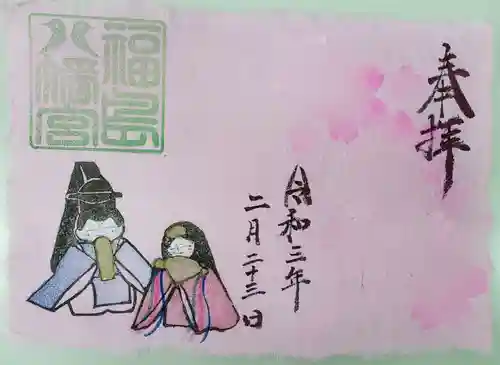 奉拝
令和三年
二月二十三日
福島
八幡宮